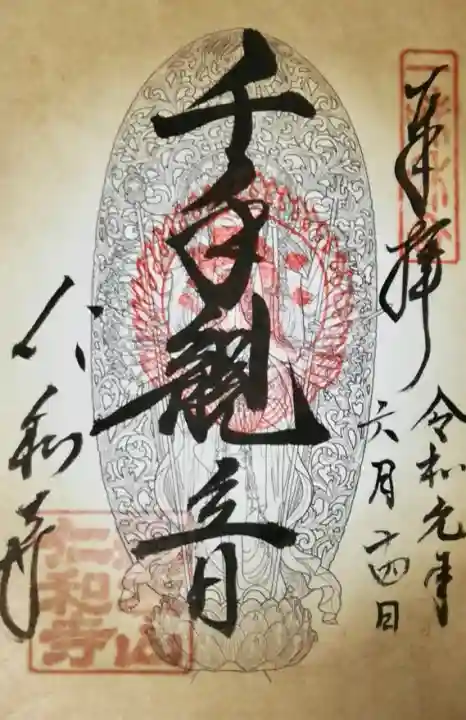 奉拝
令和元年
六月二四日
千手観音
仁和寺
仁和寺